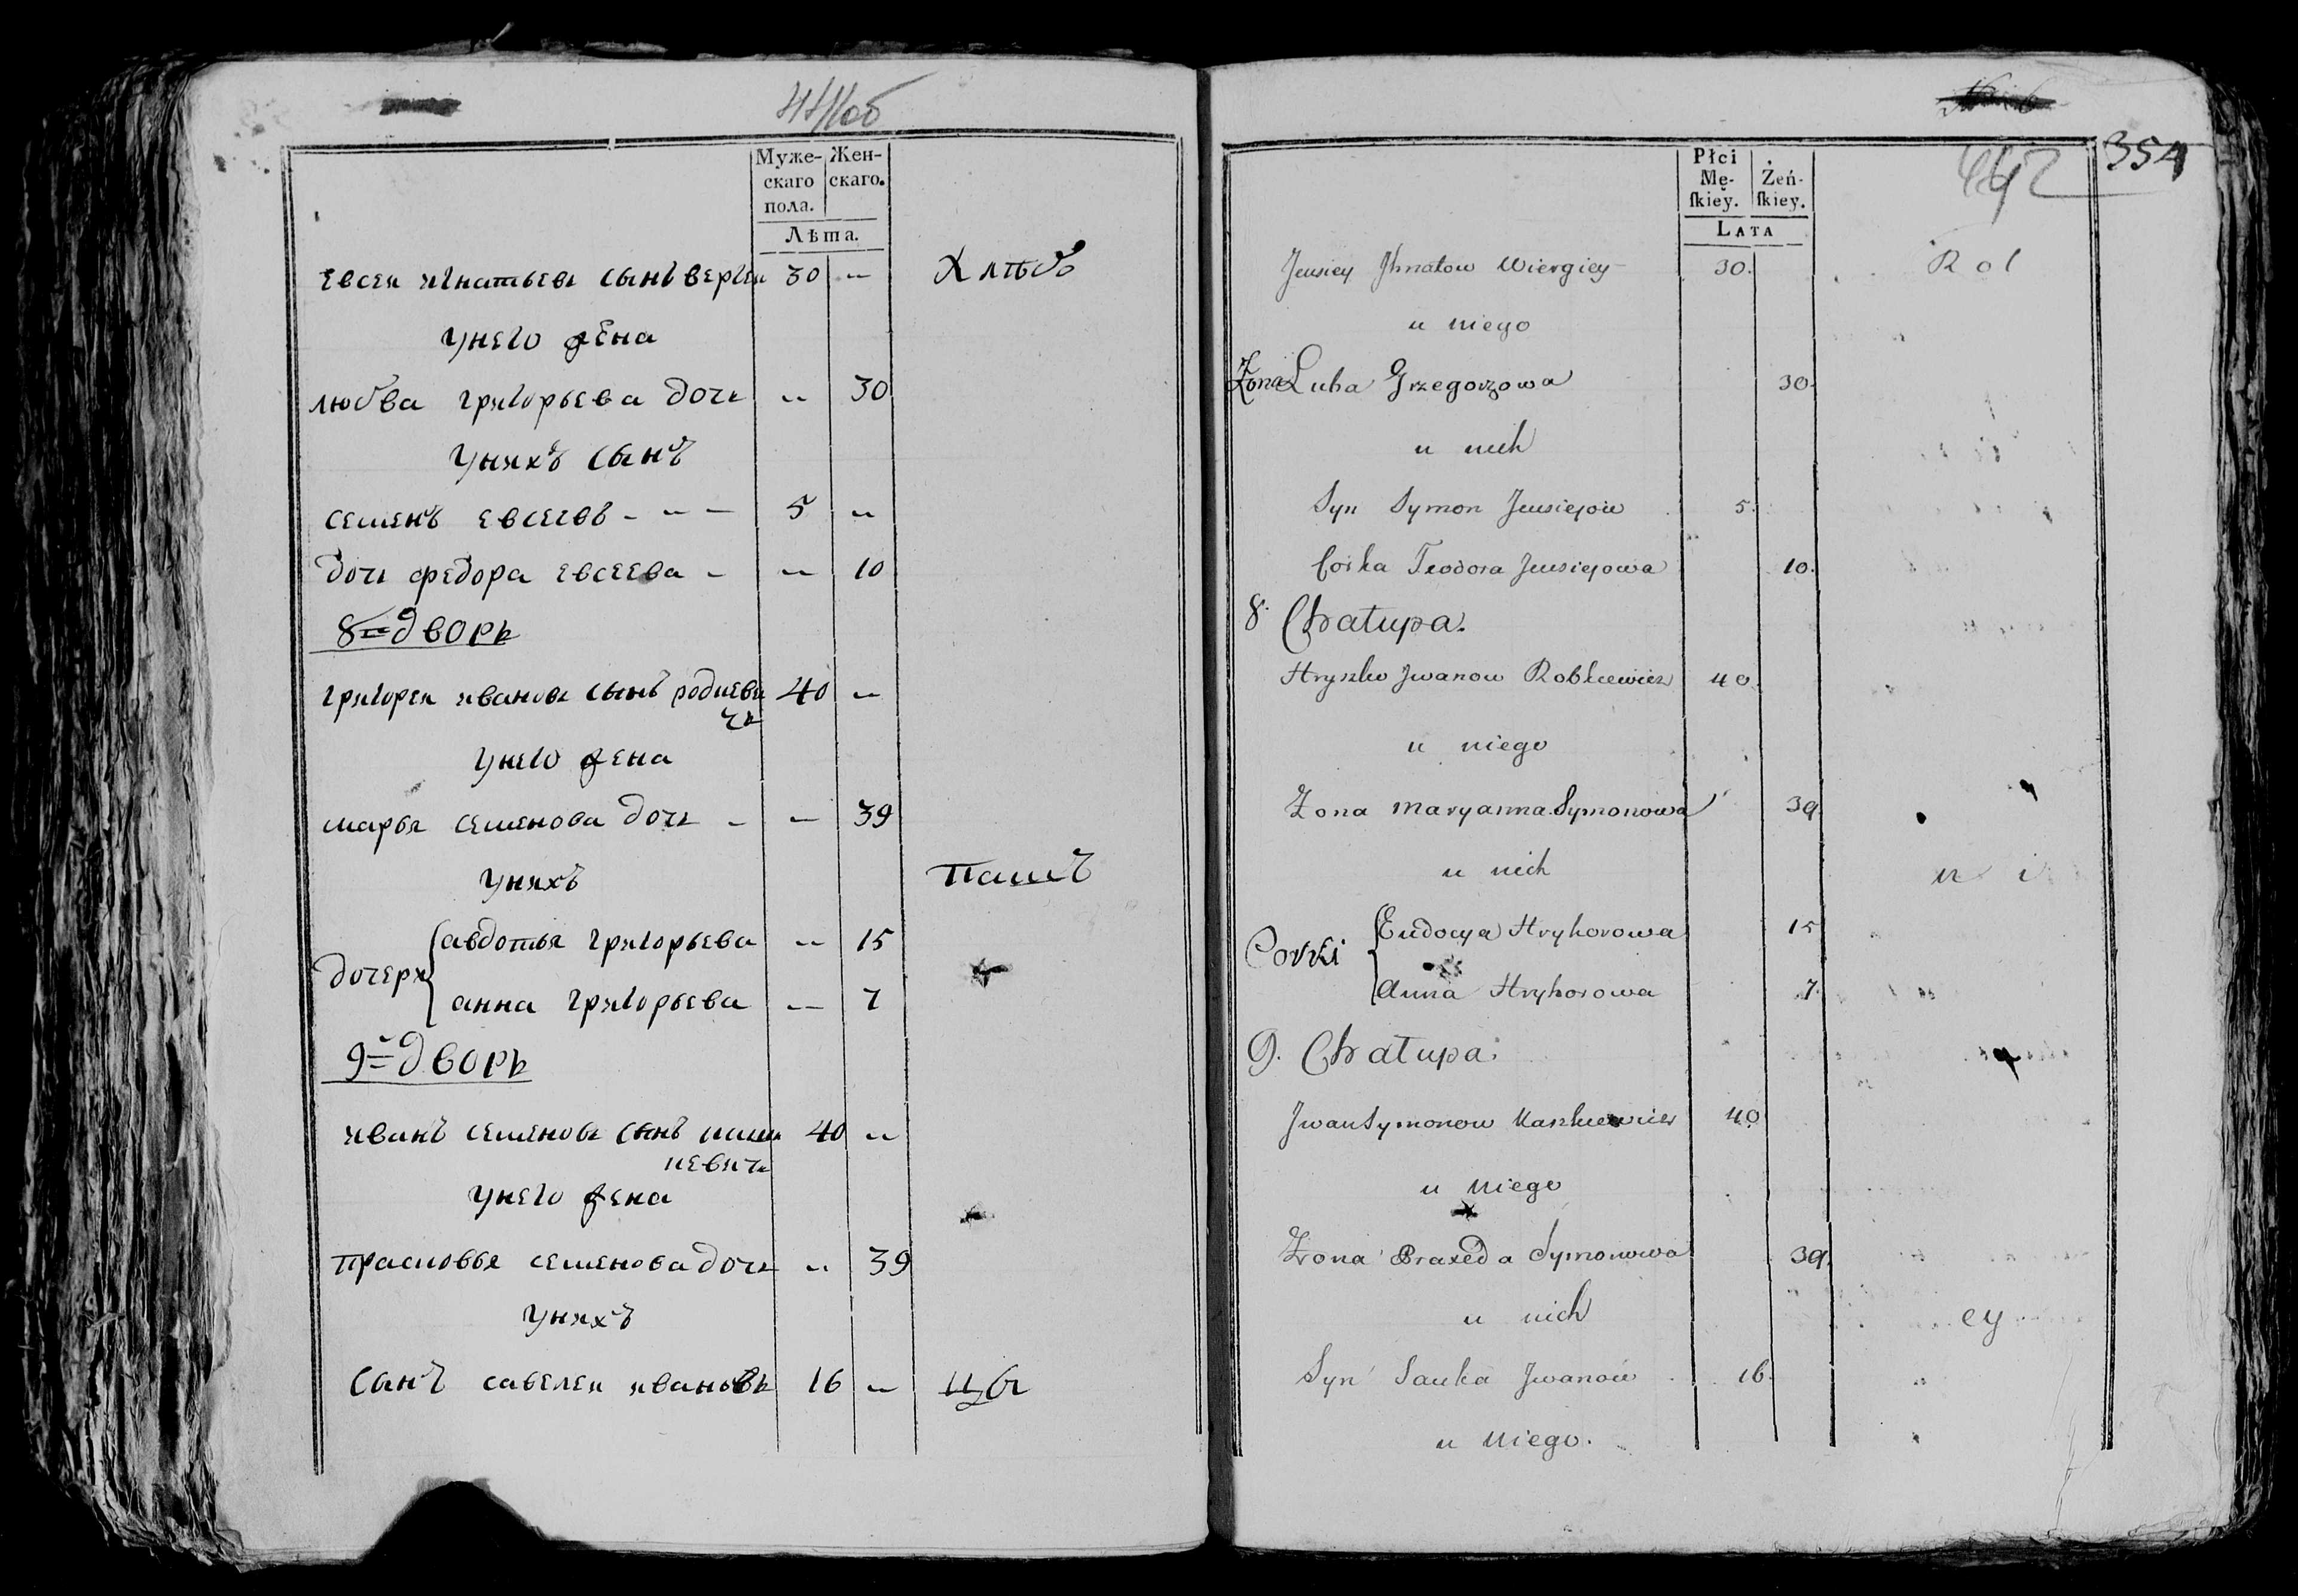 Муже-
скаго
пола.
Жен-
скаго.
Лѣта.
Евсей игнатьевъ сынъ вергей 30 " Хлѣбо
унего жена
любва григорьева дочь " 30
унихъ сынъ
семенъ евсеевъ - - - 5 "
дочь федора евсеева - " 10
8й дворъ
григорей ивановъ сынъ 40 "
унего жена
марья семенова дочь - " 39
унихъ пашъ
дочери { авдотья григорьева " 15
анна григорьева " 7
9й дворъ
иванъ семеновъ сынъ 40 "
кевичь
унего жена
прасковья семенова дочь " 39
унихъ
сынъ савелей ивановъ 16 " цы
354
Płci
Mę-
ſkiey.
Żeń-
ſkiey.
LATA
Jewsiey Jhnatow Wiergiey 30. Rol
u niego
Żona Luba Grzegorzowa 30.
u nich
Syn Symon Jewsiejow 5.
Corka Teodora Jewsiejowa 10.
8. Chałupa.
Hryszko Jwanow Robkiewicz 40.
u niego
Żona Maryanna Symonowa 39
u nich ni
Corki { Eudocya Hryhorowa 15
Anna Hryhorowa 7.
9. Chałupa.
Jwan Symonow Maszkiewicz 40
u niego
Żona Praxeda Symonowa 39.
u nich ey
Syn Sauka Jwanow 16.
u niego.